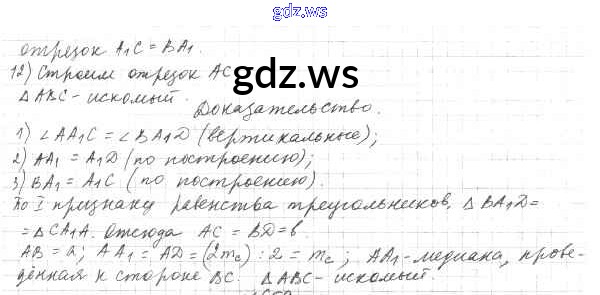 gdz.ws
отрезок A₁C = BA₁.
12) Строим отрезок AC
gdz.ws
△ABC - искомый.
Доказательство.
1) ∠AA₁C = ∠BA₁D (вертикальные);
2) AA₁ = A₁D (по построению);
3) BA₁ = A₁C (по построению).
По I признаку равенства треугольников, △BA₁D =
= △CA₁A. Отсюда AC = BD = b.
AB = a; AA₁ = AD = (2mc) : 2 = mc; AA₁ - медиана, прове-
дённая к стороне BC. △ABC - искомый.